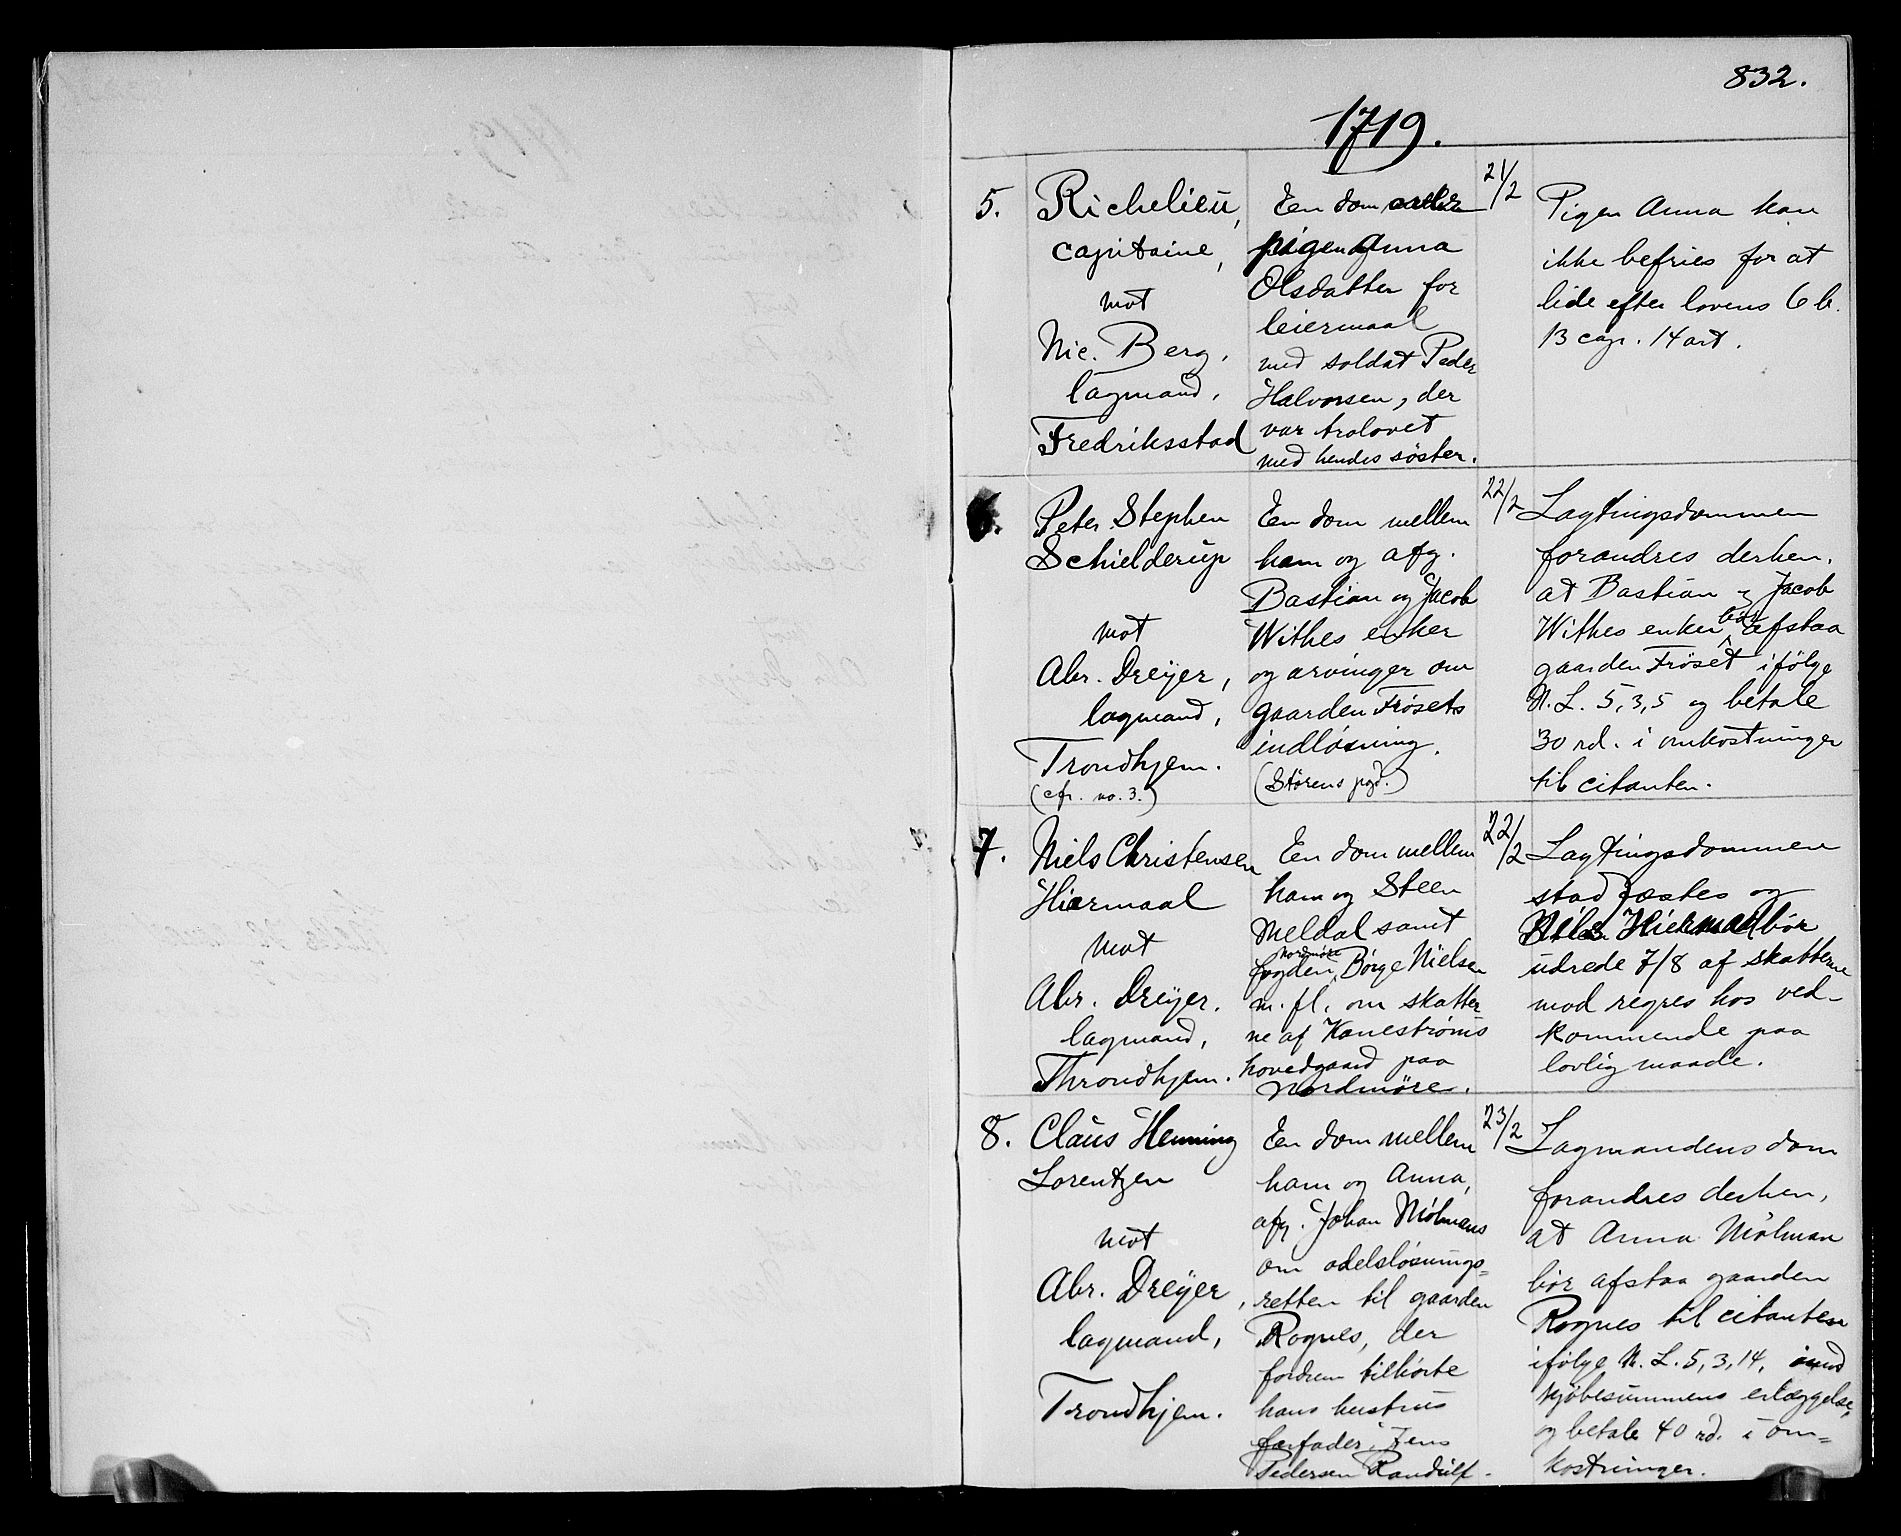 832.
1719.
5.
Richelieu,
capitaine,
mot
Nic. Berg,
lagmand,
Fredriksstad
En dom over
pigen Anna
Olsdatter for
leiermaal
med soldat Peder
Halvorsen, der
var trolovet
med hendes søster.
21/2
Pigen Anna kan
ikke befries for at
lide efter lovens 6 b.
13 cap. 14 art.
6.
Peter Stephen
Schielderup
mot
Abr. Dreyer,
lagmand,
Trondhjem.
(cfr. no. 3.)
En dom mellem
ham og afg.
Bastian og Jacob
Withes enker
og arvinger om
gaarden Frøsets
indløsning.
(Størens pgd.)
22/2
Lagtingsdommen
forandres derhen,
at Bastian og Jacob
Withes enker bør afstaa
gaarden Frøset ifølge
N. L. 5, 3, 5 og betale
30 rd. i omkostninger
til citanten.
7.
Niels Christensen
Hiermaal
mot
Abr. Dreyer.
lagmand,
Throndhjem.
En dom mellem
ham og Steen
Meldal samt
Nordmøre
fogden, Børge Nielsen
m. fl. om skatter
ne af Kanestrøms
hovedgaard paa
Nordmøre.
22/2
Lagtingsdommen
stadfæstes og
Niels Hiermaal bør
udrede 7/8 af skatterne
mod regres hos ved-
kommende paa
lovlig maade.
8.
Claus Henning
Lorentzen
mot
Abr. Dreyer,
lagmand,
Trondhjem.
En dom mellem
ham og Anna,
afg. Johan Mølmans
om odelsløsnings=
retten til gaarden
Rognes, der
fordum tilhørte
hans hustrus
farfader, Jens
Pedersen Randulf.
23/2
Lagmandens dom
forandres derhen,
at Anna Mølman
bør afstaa gaarden
Rognes til citanten
ifølge N. L. 5, 3, 14, mod
kjøbesummens erlæggelse,
og betale 40 rd. i om=
kostninger.